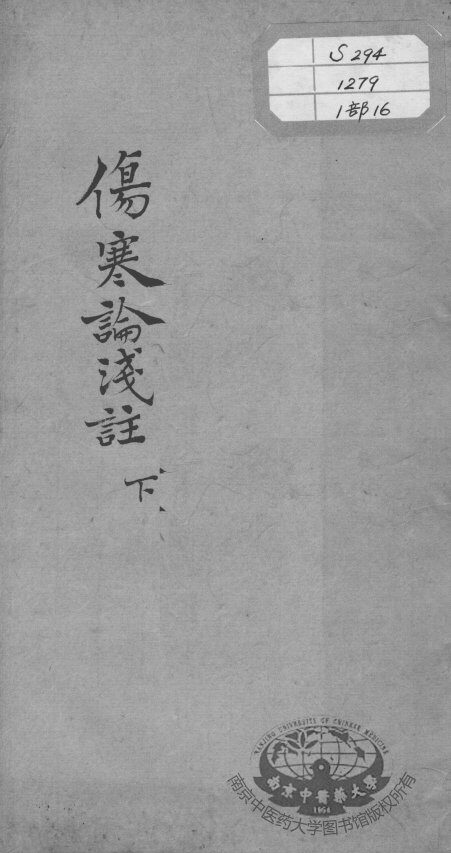 S 294
1279
1部16
傷寒論淺註
下
NANJING UNIVERSITY OF CHINESE MEDICINE
南京中醫藥大學
1954
南京中医药大学图书馆版权所有